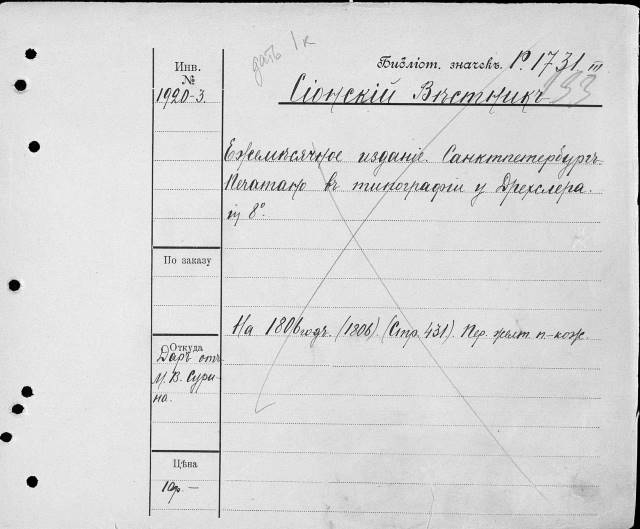 дать 1к
Инв.
№
1920-3.
Библіот. значекъ. Р. 1731 III
133
Сіонскій Вѣстникъ
Ежемѣсячное изданіе. Санктпетербургъ.
Печатано въ типографіи у Дрехслера.
8°.
По заказу
На 1806 годъ. (1806). (Стр. 431). Пер. желт. п-кож.
Откуда
Даръ отъ
М. В. Сури-
на.
Цѣна
10р. —